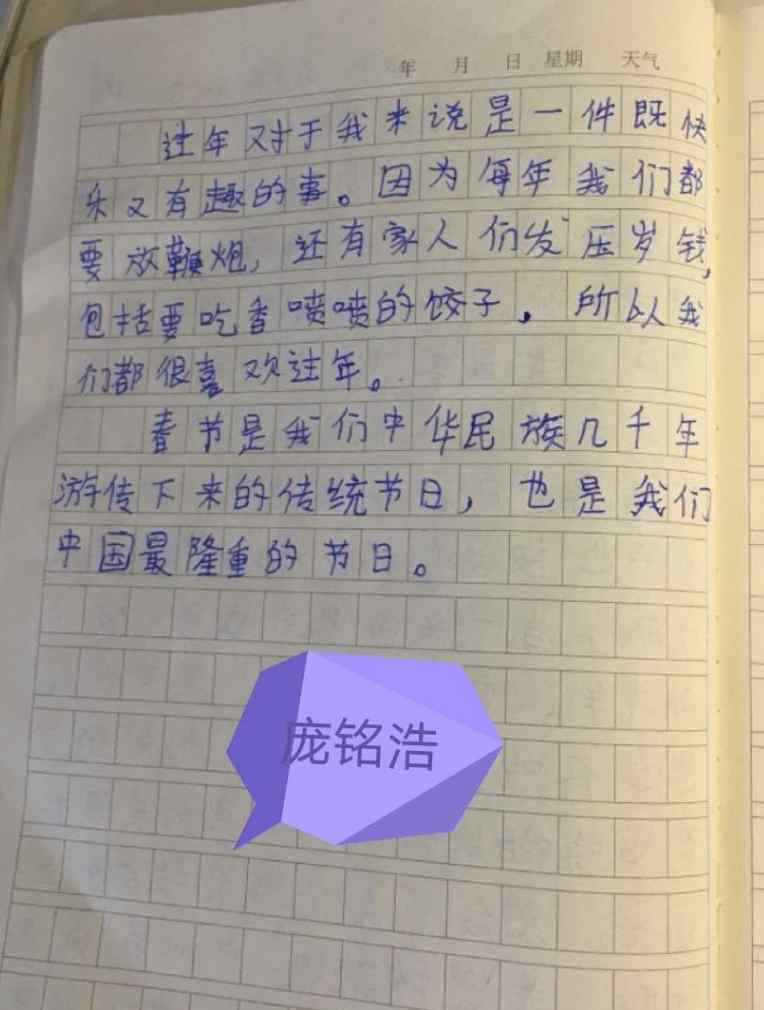 年 月 日 星期 天气
过年对于我来说是一件既快
乐又有趣的事。因为每年我们都
要放鞭炮，还有家人们发压岁钱，
包括要吃香喷喷的饺子，所以我
们都很喜欢过年。
春节是我们中华民族几千年
游传下来的传统节日，也是我们
中国最隆重的节日。
庞铭浩